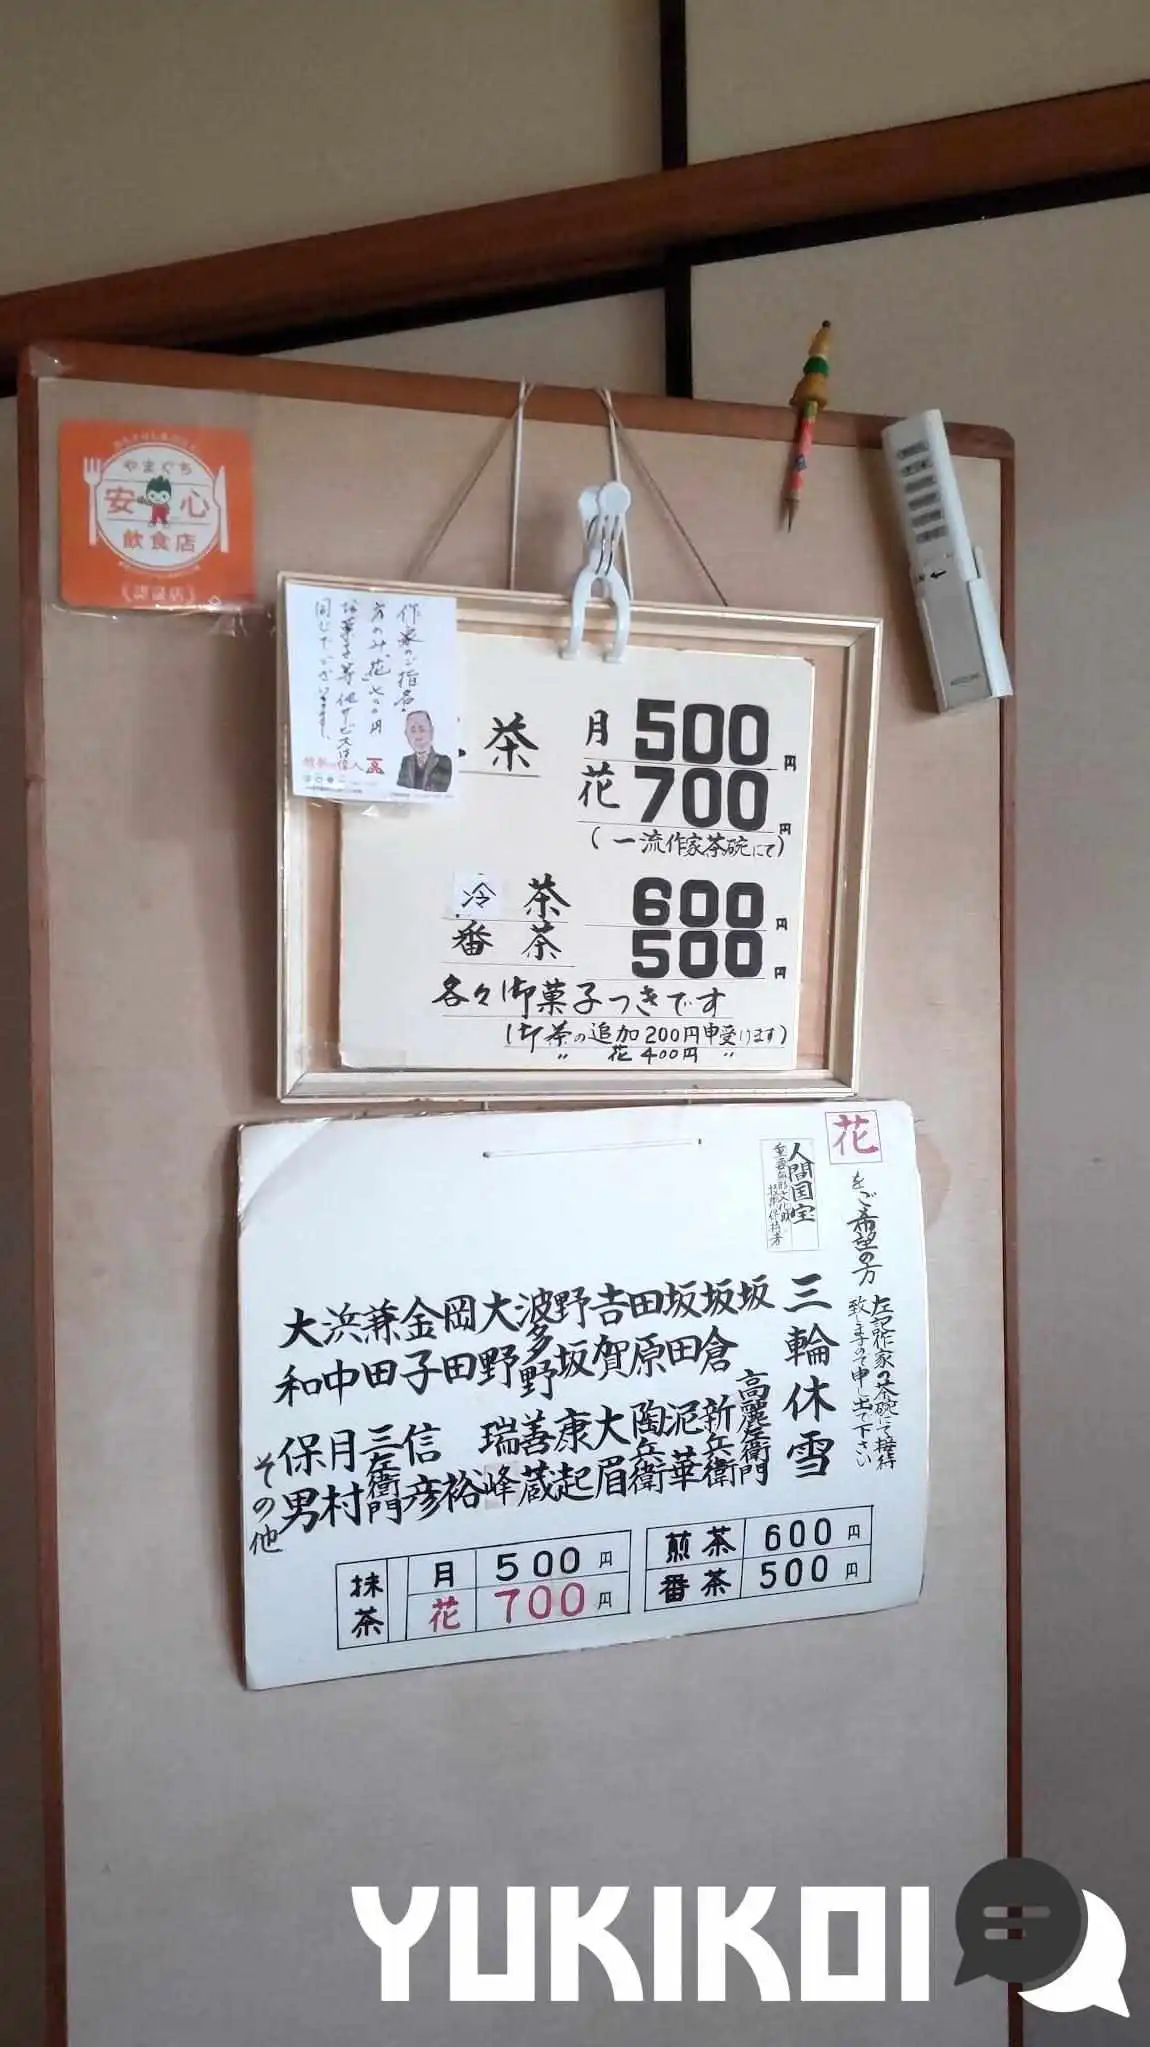 やまぐち
安心
飲食店
認証店
作家のご指名
方のみ、花 七〇〇円
お菓子等他サービスは
同じでございます。
茶
月 500円
花 700円
(一流作家茶碗にて)
冷茶 600円
番茶 500円
各々御菓子つきです
(御茶の追加200円申受けます)
〃 花 400円 〃
花
をご希望の方
左記作家の茶碗にて接待
致しますので申し出て下さい
人間国宝
重要無形文化財
技術保持者
三輪休雪
坂高麗左衛門
坂倉新兵衛
坂田泥華
田原陶兵衛
吉賀大眉
野坂康起
波多野善蔵
大野瑞峰
岡田裕
金子信彦
兼田三左衛門
浜中月村
大和保男
その他
抹茶
月 500円
花 700円
煎茶 600円
番茶 500円
YUKIKOI